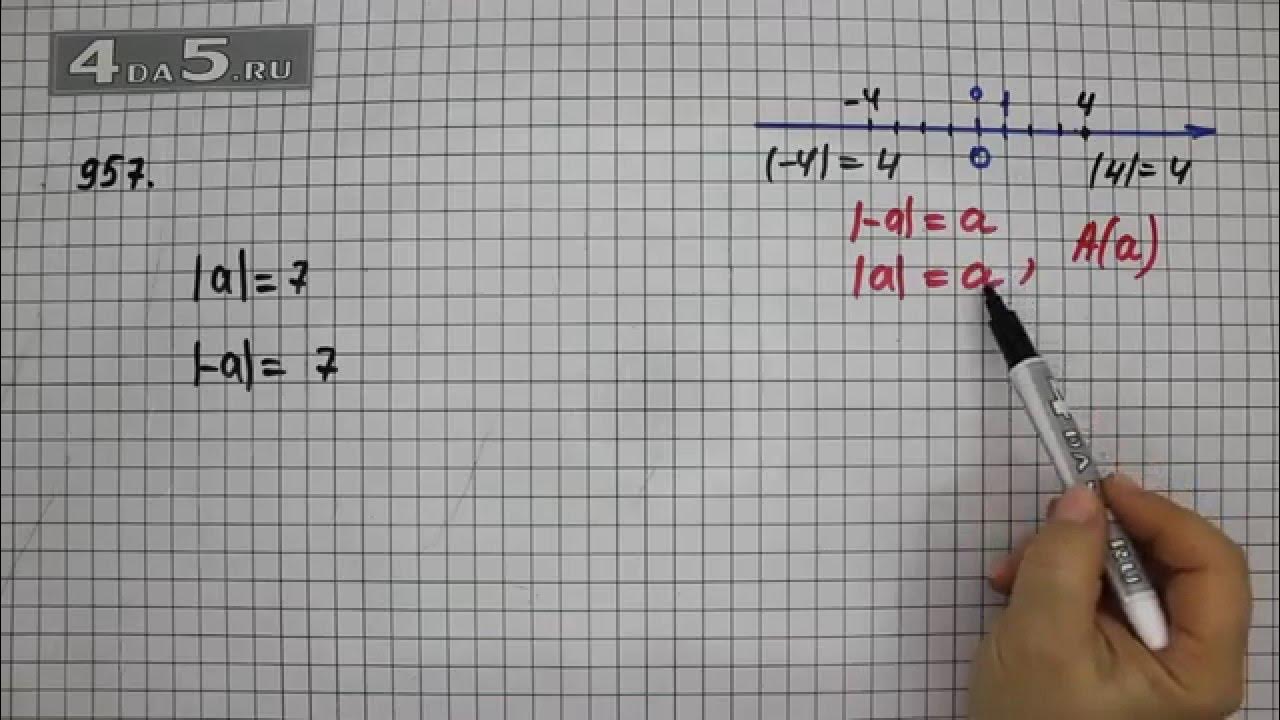 4DA5.RU
957.
|a| = 7
|-a| = 7
-4 0 1 4
|-4| = 4 0 |4| = 4
|-a| = a
|a| = a, A(a)
4DA RU